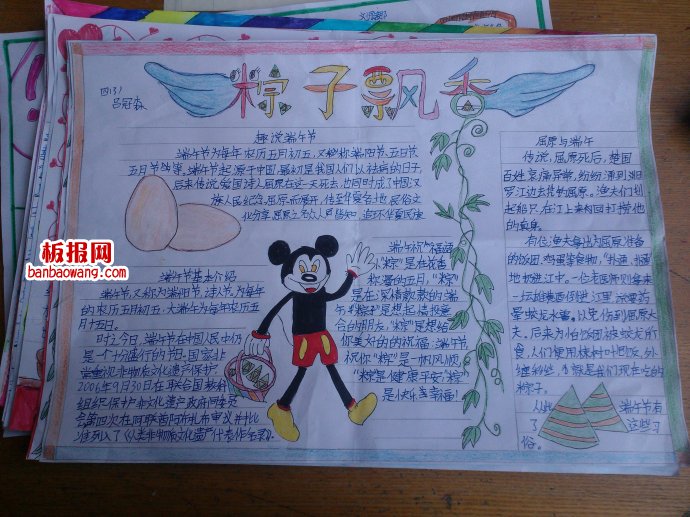 粽子飘香
四(3)
吕冠森
趣说端午节
端午节为每年农历五月初五,又称端阳节、五日节
五月节等,端午节起源于中国,最初是我国人们以祛病的日子,
后来传说,爱国诗人屈原在这一天死去,也同时成了中国汉
族人民纪念屈原
端午节基本介绍
端午节,又称为端阳节、诗人节。为每年
的农历五月初五,大端午为每年农历五
月十五日。
时之今日,端午节在中国人民中仍
是一个十分盛行的节日,国家非
常重视非物质文化遗产保护
2006年9月30日在联合国教科
组织保护非文化遗产政府间委员
会第四次在阿联酋阿布扎布审议并批
准列入了《人类非物质文化遗产代表作名录》。
端午祝福语
"粽"是在花香
弥漫的五月,"粽"
是在深情款款的端午
"粽"是想起情投意
合的朋友,"粽"是想给
你美好的的祝福:端午节
祝你"粽"是一帆风顺,
"粽"是健康平安,"粽"
是快乐幸福!
屈原与端午
传说,屈原死后,楚国
百姓哀痛异常,纷纷涌到汨
罗江边去凭吊屈原。渔夫们划
起船只,在江上来回打捞他
的真身。
有位渔夫拿出为屈原准备
的饭团、鸡蛋等食物,"扑通、扑通"
地扔进江中。一位老医师则拿来
一坛雄黄酒倒进江里,
蛟龙水兽,以免伤到屈原大
夫。后来为怕饭团被蛟龙所
食,人们使用楝树叶包饭,外
缠彩丝,
粽子。
从此 端午节有
了 这些习
俗。
板报网
banbaowang.com